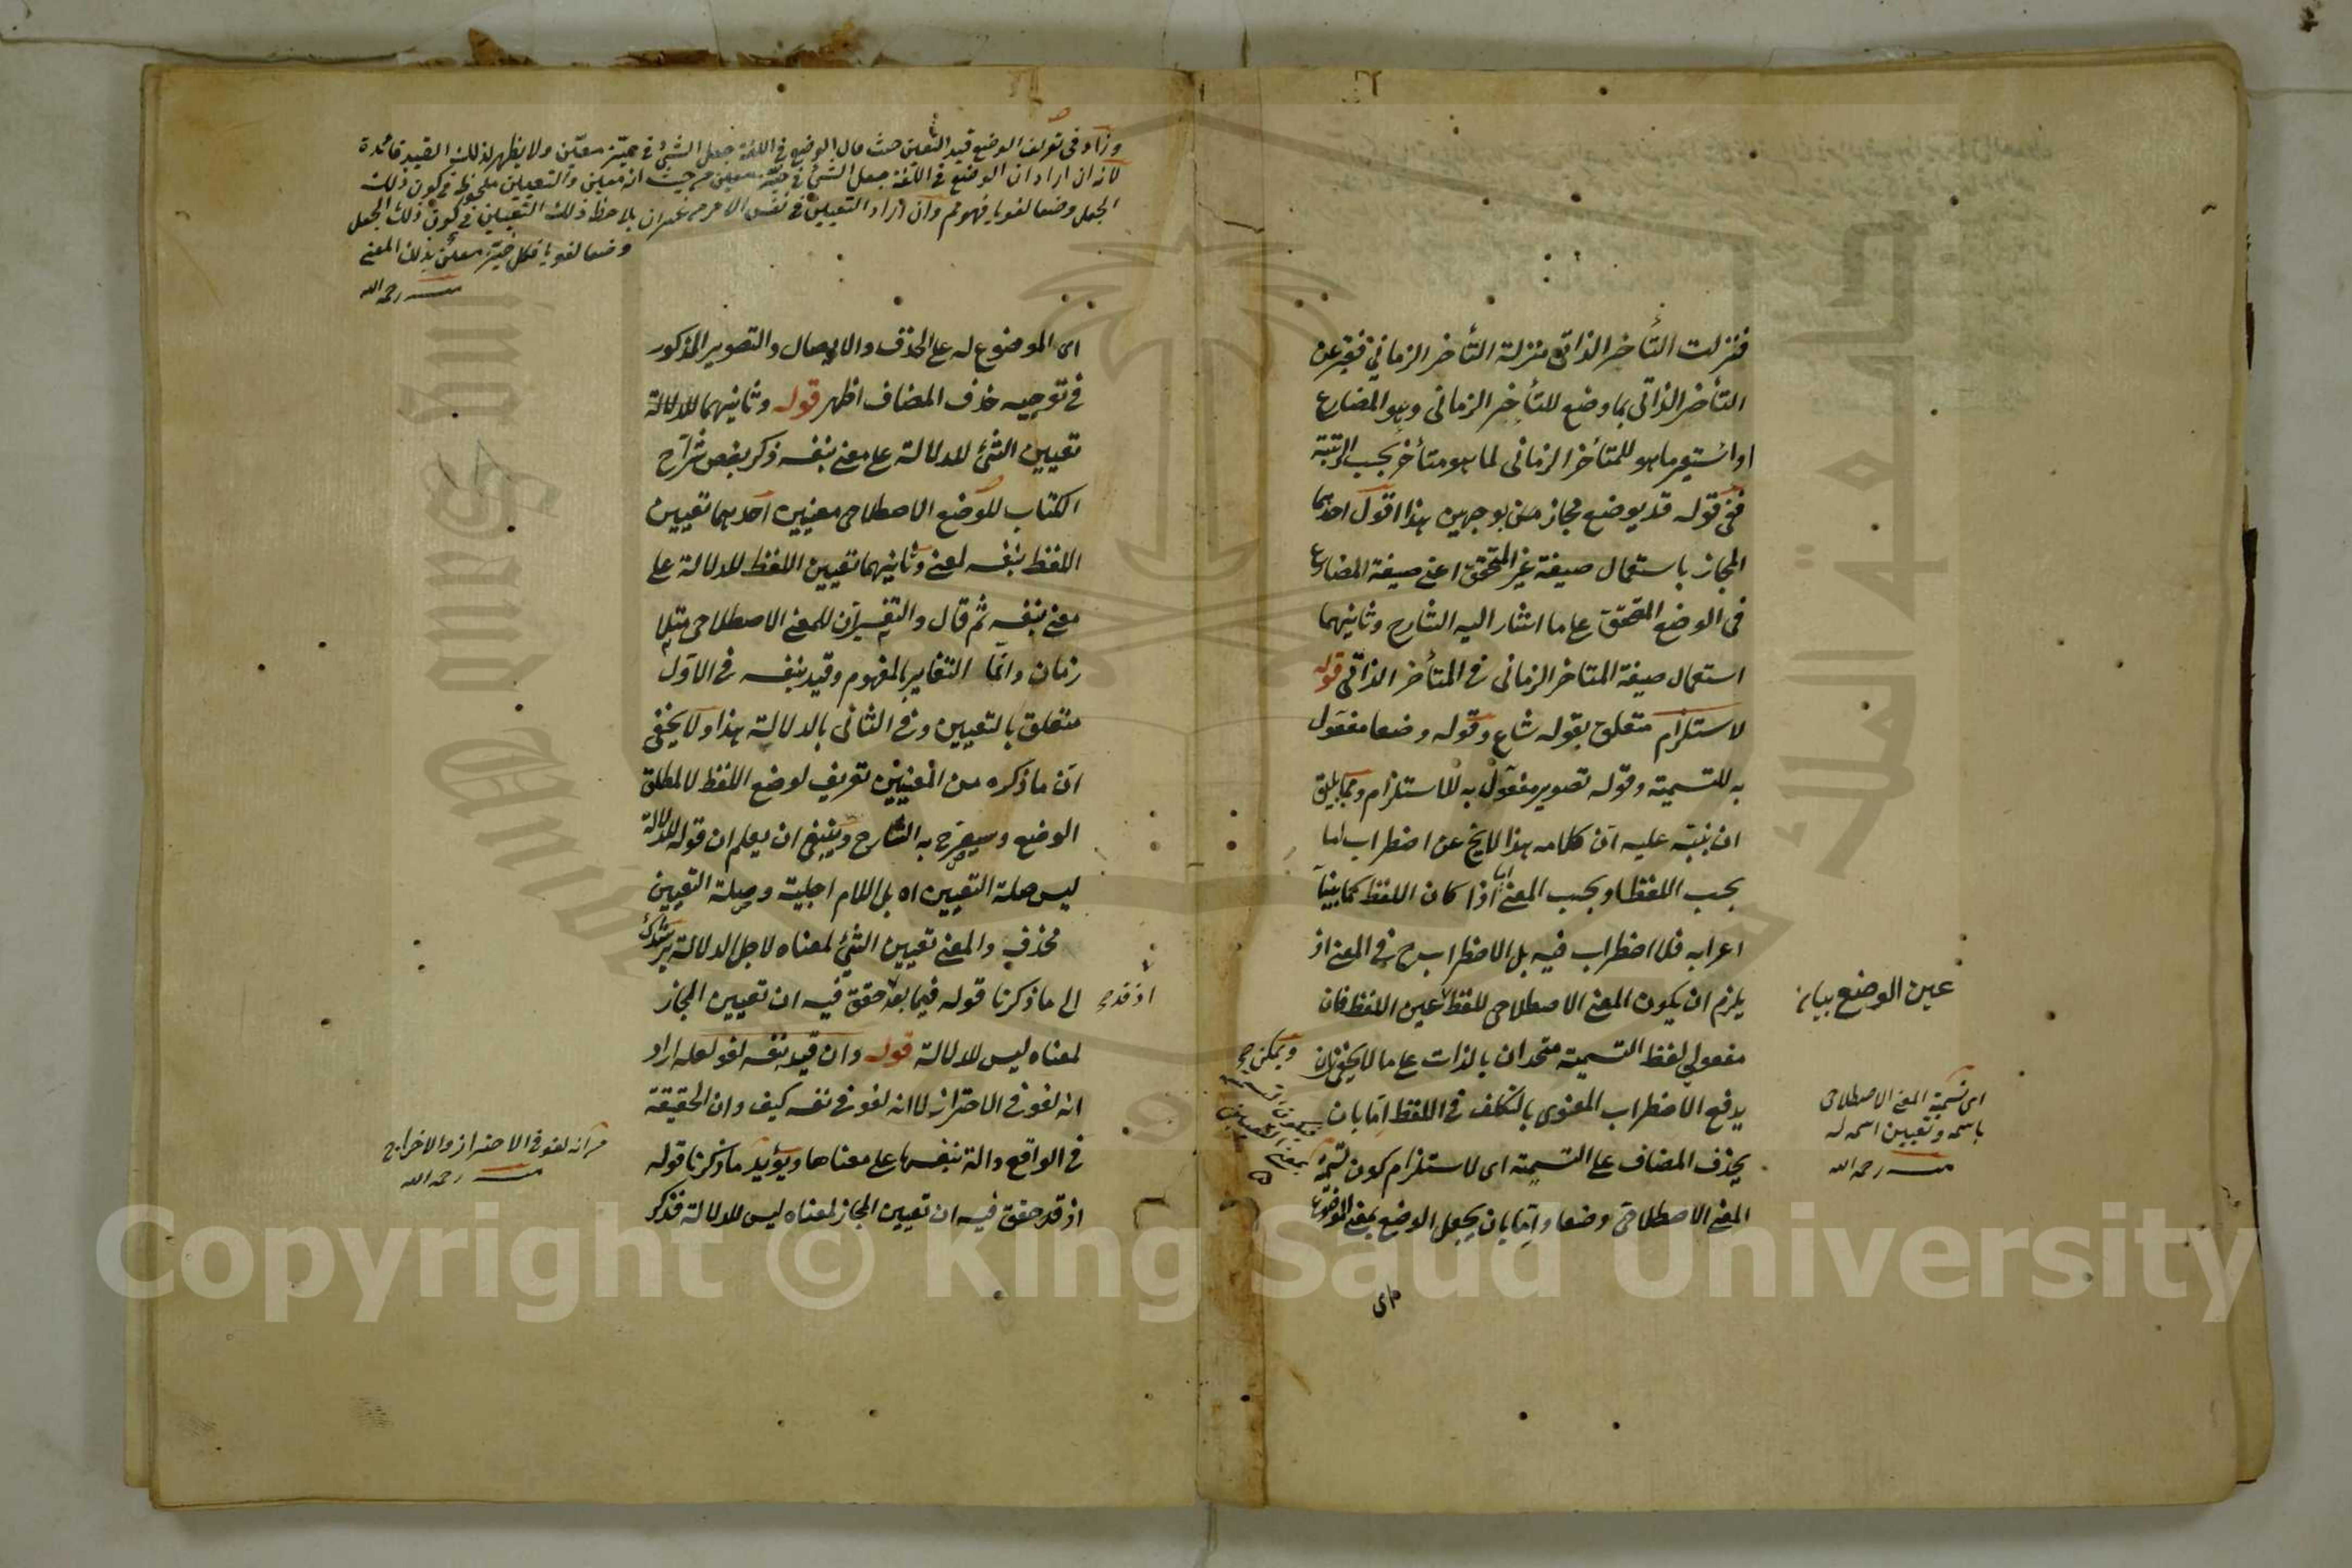 فنزلت التأخر الذاتي منزلة التأخر الزماني فعبر عن
التأخر الذاتي بما وضع للتأخر الزماني وهو المضارع
او استعير ما هو للمتأخر الزماني لما هو متأخر بحسب الرتبة
ففي قوله قد يوضع مجاز من بوجهين هذا اقول احدهما
المجاز باستعمال صيغة غير المتحقق اعني صيغة المضارع
في الوضع المتحقق على ما اشار اليه الشارح وثانيهما
استعمال صيغة المتاخر الزماني في المتأخر الذاتي قوله
لاستلزام متعلق بقوله شاع وقوله وضعا مفعول
به للتسمية وقوله تصوير مفعول به للاستلزام ومما يليق
ان ينبّه عليه انّ كلامه هذا لا يخ عن اضطراب اما
بحسب اللفظ او بحسب المعنى اذا كان اللفظ كما بينا
اعرابه فلا اضطراب فيه بل الاضطراب ح في المعنى اذ
يلزم ان يكون المعنى الاصطلاحي للفظ عين اللفظ فان
عين الوضع بيانه
مفعولي لفظ التسمية متحدان بالذات على ما لا يخفى
ويمكن ح
يدفع الاضطراب المعنوي بالتكلف في اللفظ امّا بان
يحذف المضاف على التسمية اى لاستلزام كون تسمية
المعنى الاصطلاحي وضعا وامّا بان يجعل الوضع بمعنى الموضوع
اى تسمية المعنى الاصطلاحي
باسمه وتعيين اسمه له
منه رحمه الله
اى
وزاد في تعريف الوضع قيد التعين حيث قال الوضع في اللغة جعل الشئ في حيّز معيّن ولا يظهر لذلك القيد فائدة
لانه ان اراد ان الوضع في اللغة جعل الشئ في حيّز معين من حيث انه معين والتعيين ملحوظ في كون ذلك
الجعل وضعا لغويا فهو مم وان اراد التعيين في نفس الامر من غير ان يلاحظ ذلك التعيين في كون ذلك الجعل
وضعا لغويا فكل حيّز معيّن بذلك المعنى
منه رحمه الله
اى الموضوع له على الحذف والايصال والتصوير المذكور
في توجيه حذف المضاف اظهر قوله وثانيهما للدلالة
تعيين الشئ للدلالة على معنى بنفسه ذكر بعض شرّاح
الكتاب للوضع الاصطلاحي معنيين احدهما تعيين
اللفظ بنفسه لمعنى وثانيهما تعيين اللفظ للدلالة على
معنى بنفسه ثم قال والتفسيران للمعنى الاصطلاحي متلا
زمان وانما التغاير بالمفهوم وقيد بنفسه في الاوّل
متعلق بالتعيين وفي الثاني بالدلالة هذا ولا يخفى
انّ ما ذكره من المعنيين تعريف لوضع اللفظ لا لمطلق
الوضع وسيصرّح به الشارح وينبغي ان يعلم ان قوله للدلالة
ليس صلة التعيين اه بل اللام اجلية وصلة التعيين
محذوف والمعنى تعيين الشئ لمعناه لاجل الدلالة يرشدك
الى ما ذكرنا قوله فيما بعد حقق فيه ان تعيين المجاز
اذ قد صح
لمعناه ليس للدلالة قوله وان قيد نفسه لغو لعله اراد
انه لغو في الاحتراز لا انه لغو في نفسه كيف وان الحقيقة
في الواقع دالة بنفسها على معناها ويؤيد ما ذكرنا قوله
اذ قد حقق فيه ان تعيين المجاز لمعناه ليس للدلالة فذكر
انه لغو في الاحتراز والاخراج
منه رحمه الله
Copyright © King Saud University